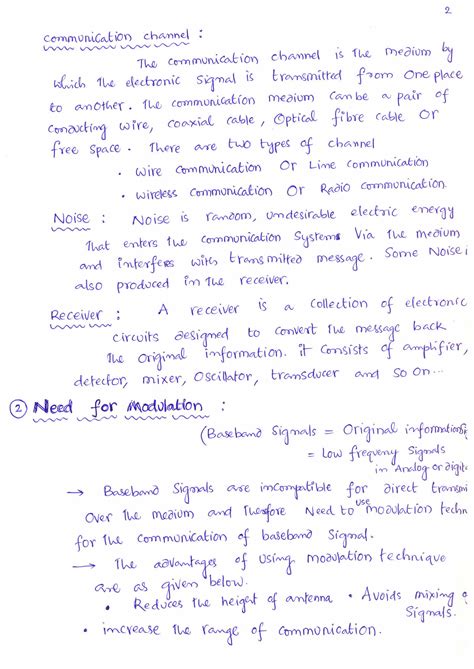 2
communication channel :
The communication channel is the medium by
which the electronic signal is transmitted from one place
to another. The communication medium can be a pair of
conducting wire, coaxial cable, Optical fibre cable Or
free space. There are two types of channel
• wire communication Or Line communication
• wireless communication Or Radio communication
Noise : Noise is random, undesirable electric energy
that enters the communication Systems Via the medium
and interferes with transmitted message. Some Noise i
also produced in the receiver.
Receiver : A receiver is a collection of electronic
circuits designed to convert the message back
the Original information. it consists of amplifier,
detector, mixer, Oscillator, transducer and so on...
② Need for Modulation :
(Baseband Signals = Original informatio
= Low frequency Signals
in Analog or digit
→ Baseband Signals are incompatible for direct transmi
Over the medium and Therefore Need to use modulation techn
for the communication of baseband Signal.
→ The advantages of Using modulation technique
are as given below.
• Reduces the height of antenna • Avoids mixing o
Signals.
• increase the range of communication.